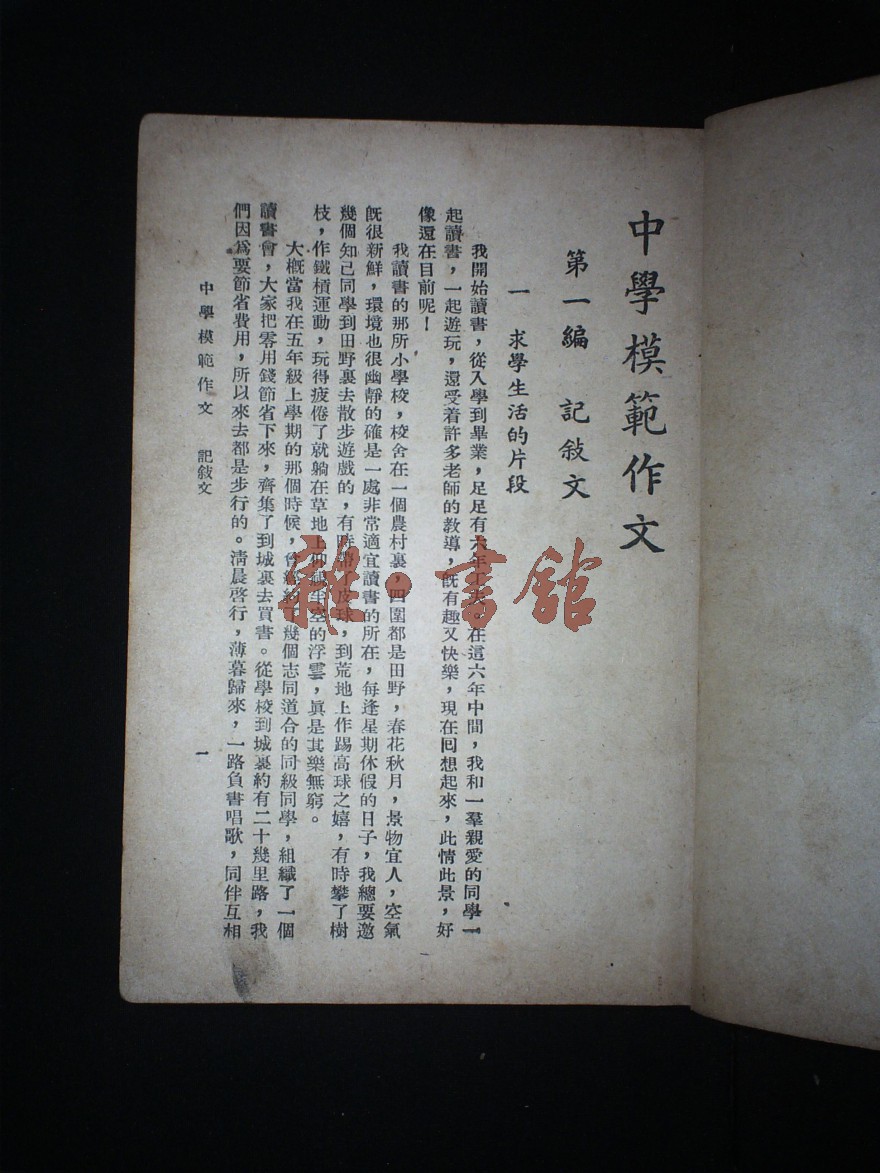 中學模範作文
第一編　記敍文
一　求學生活的片段
我開始讀書，從入學到畢業，足足有六年工夫。在這六年中間，我和一羣親愛的同學一
起讀書，一起遊玩，還受着許多老師的教導，旣有趣又快樂，現在回想起來，此情此景，好
像還在目前呢！
我讀書的那所小學校，校舍在一個農村裏，四圍都是田野，春花秋月，景物宜人，空氣
旣很新鮮，環境也很幽靜的確是一處非常適宜讀書的所在，每逢星期休假的日子，我總要邀
幾個知己同學到田野裏去散步遊戲的，有時帶了皮球，到荒地上作踢高球之嬉，有時攀了樹
枝，作鐵槓運動，玩得疲倦了就躺在草地上仰觀半空的浮雲，眞是其樂無窮。
大概當我在五年級上學期的那個時候，會約了幾個志同道合的同級同學，組織了一個
讀書會，大家把零用錢節省下來，齊集了到城裏去買書。從學校到城裏約有二十幾里路，我
們因爲要節省費用，所以來去都是步行的。淸晨啓行，薄暮歸來，一路負書唱歌，同伴互相
中學模範作文　記敍文
一
雜·書館